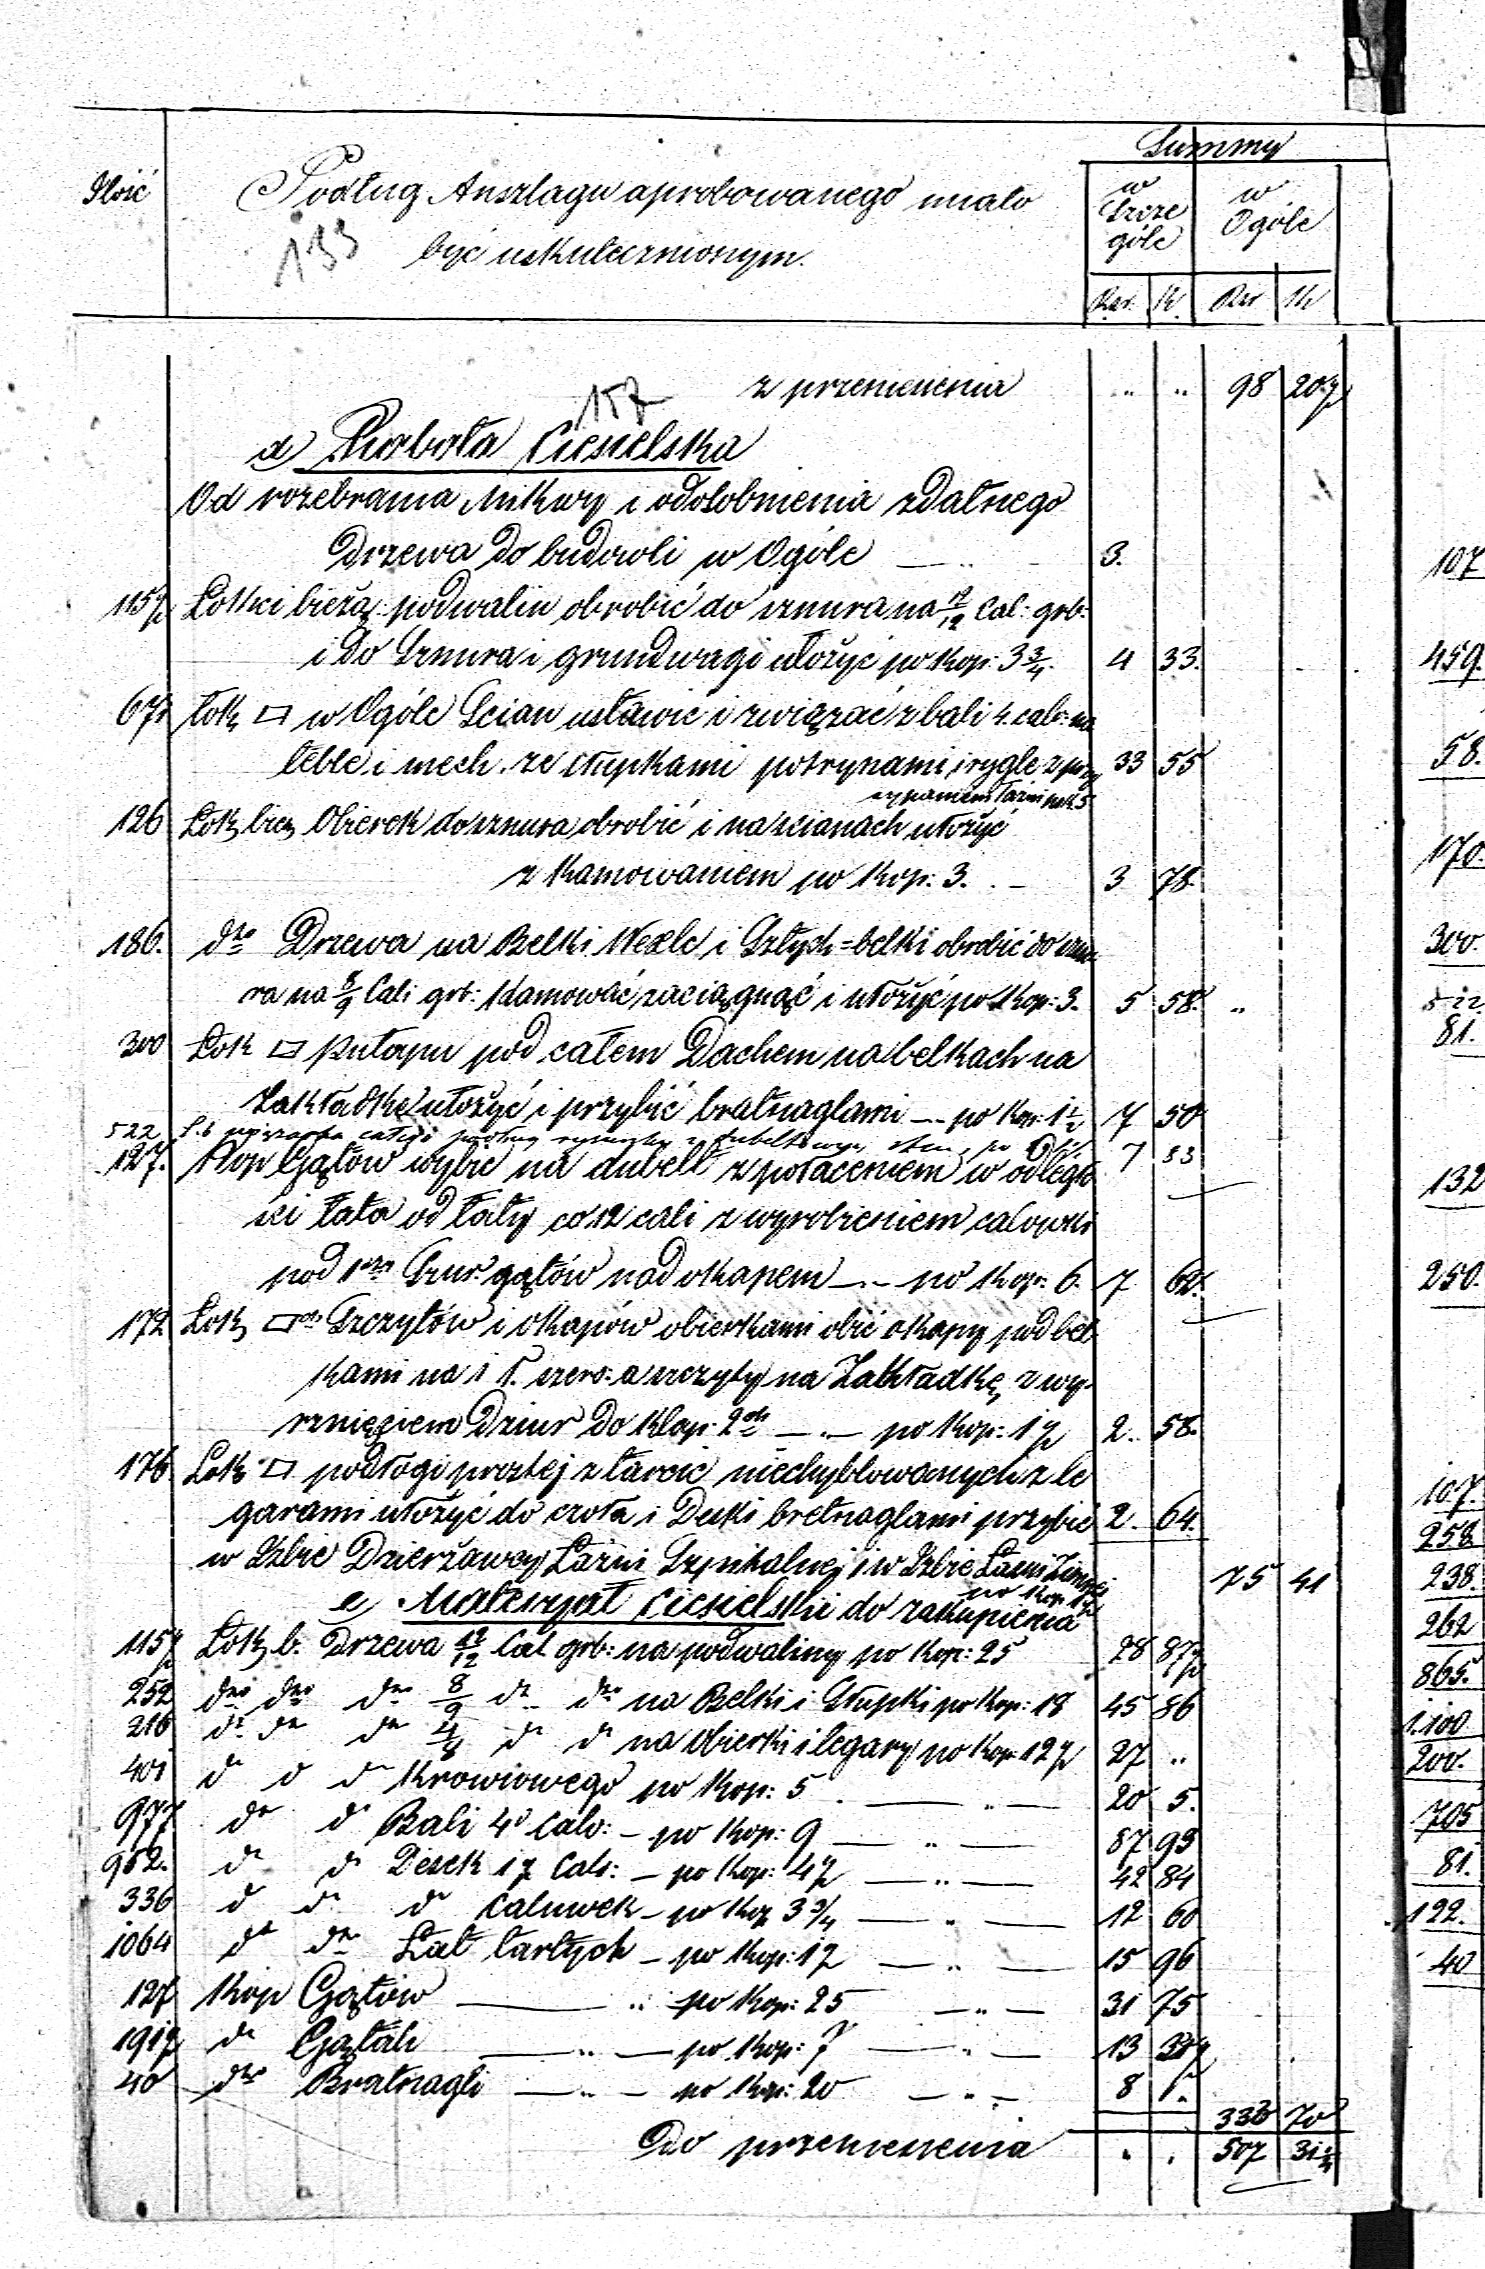 Summy
Ilość Podług Anszlagu aprobowanego miało
być uskutecznionym.
133
w Szczególe w Ogóle
Rsr. K. Rsr K
z przeniesienia „ „ 98 20½
157
d Robota Ciesielska
Od rozebrania Mikwy i odosobnienia zdatnego
Drzewa do budowli w Ogóle — „ - 3.
115½ Łokci bieżą: podwalin obrobić do sznura na 12/12 Cal: grb:
i do Sznura i grundwagi ułożyć po Kop: 3¾. 4 33.
671 Łok □ w Ogóle Scian ustawić i związać z bali 4. calo: na
teble i mech. ze słupkami potrynami i rygle z
Łaźni po k 5 33 55
126 Łok bież Obierek do sznura obrobić i na scianach ułożyć
z kamowaniem po Kop: 3. - 3 78.
186. dto Drzewa na Belki Wexle i Sztych=belki obrobić do sznu
ra na 8/9 Cali grb: kamować zaciągnąć i ułożyć po Kop: 3. 5 58. „
300 Łok □ pułapu pod całem Dachem na belkach na
Zakładkę ułożyć i przybić bratnaglami — po Kop: 1½ 7 50
522 Ł.b podług rysunku z po 7 83
127. Kop Gątów wybić na dubelt z połaceniem w odległo
ści łata od łaty co 12 cali z wyrobieniem calówki
pod 1szy Szur. gątów nad okapem — „ — po Kop: 6. 7 62.
172 Łok □ Szczytów i okapów obierkami obić okapy pod bel
kami na 1 ł. szero: a szczyty na Zakładkę z wy-
rznięciem Dziur do Klap: 2ch — „ — po Kop: 1½ 2. 58.
176 Łok □ podłogi prostej z tarcic niechyblowanych z le
garami ułożyć do czoła i Deski bretnaglami przybić 2. 64.
w Izbie Dzierżawcy Łaźni Szpitalnej i w Izbie Łaźni
po Kop: 1½ 75 41
e Materyał Ciesielski do zakupienia
115½ Łok b. Drzewa 12/12 Cal grb: na podwaliny po Kop: 25 28 87½
252 dto dto dto 8/9 dto dto na Belki i Słupki po Kop: 18 45 86
216 dto dto dto 4/8 d d na Obierki i legary po Kop 12½ 27 „
401 d d d Krowiowego po Kop: 5 — „ — 20 5.
977 dto d Bali 4o calo: – po Kop: 9 — „ — 87 93
952. d d Desek 1½ Calo: – po Kop: 4½ — „ — 42 84
336 d d d calówek – po Kop 3¾ — „ — 12 60
1064 dt dto Łat tartych – po Kop: 1½ — „ — 15 96
127 Kop Gątów — „ po Kop: 25 — „ — 31 75
191½ d Gątali — „ — po Kop: 7 — „ — 13
40 dto Bratnagli — „ — po Kop: 20 — „ — 8 „
336 70
Do przeniesienia „ „ 507 31
107
459.
58.
170.
300.
522
81.
132
250.
107.
258
238.
262
865.
1.100
200.
705
81.
122.
40